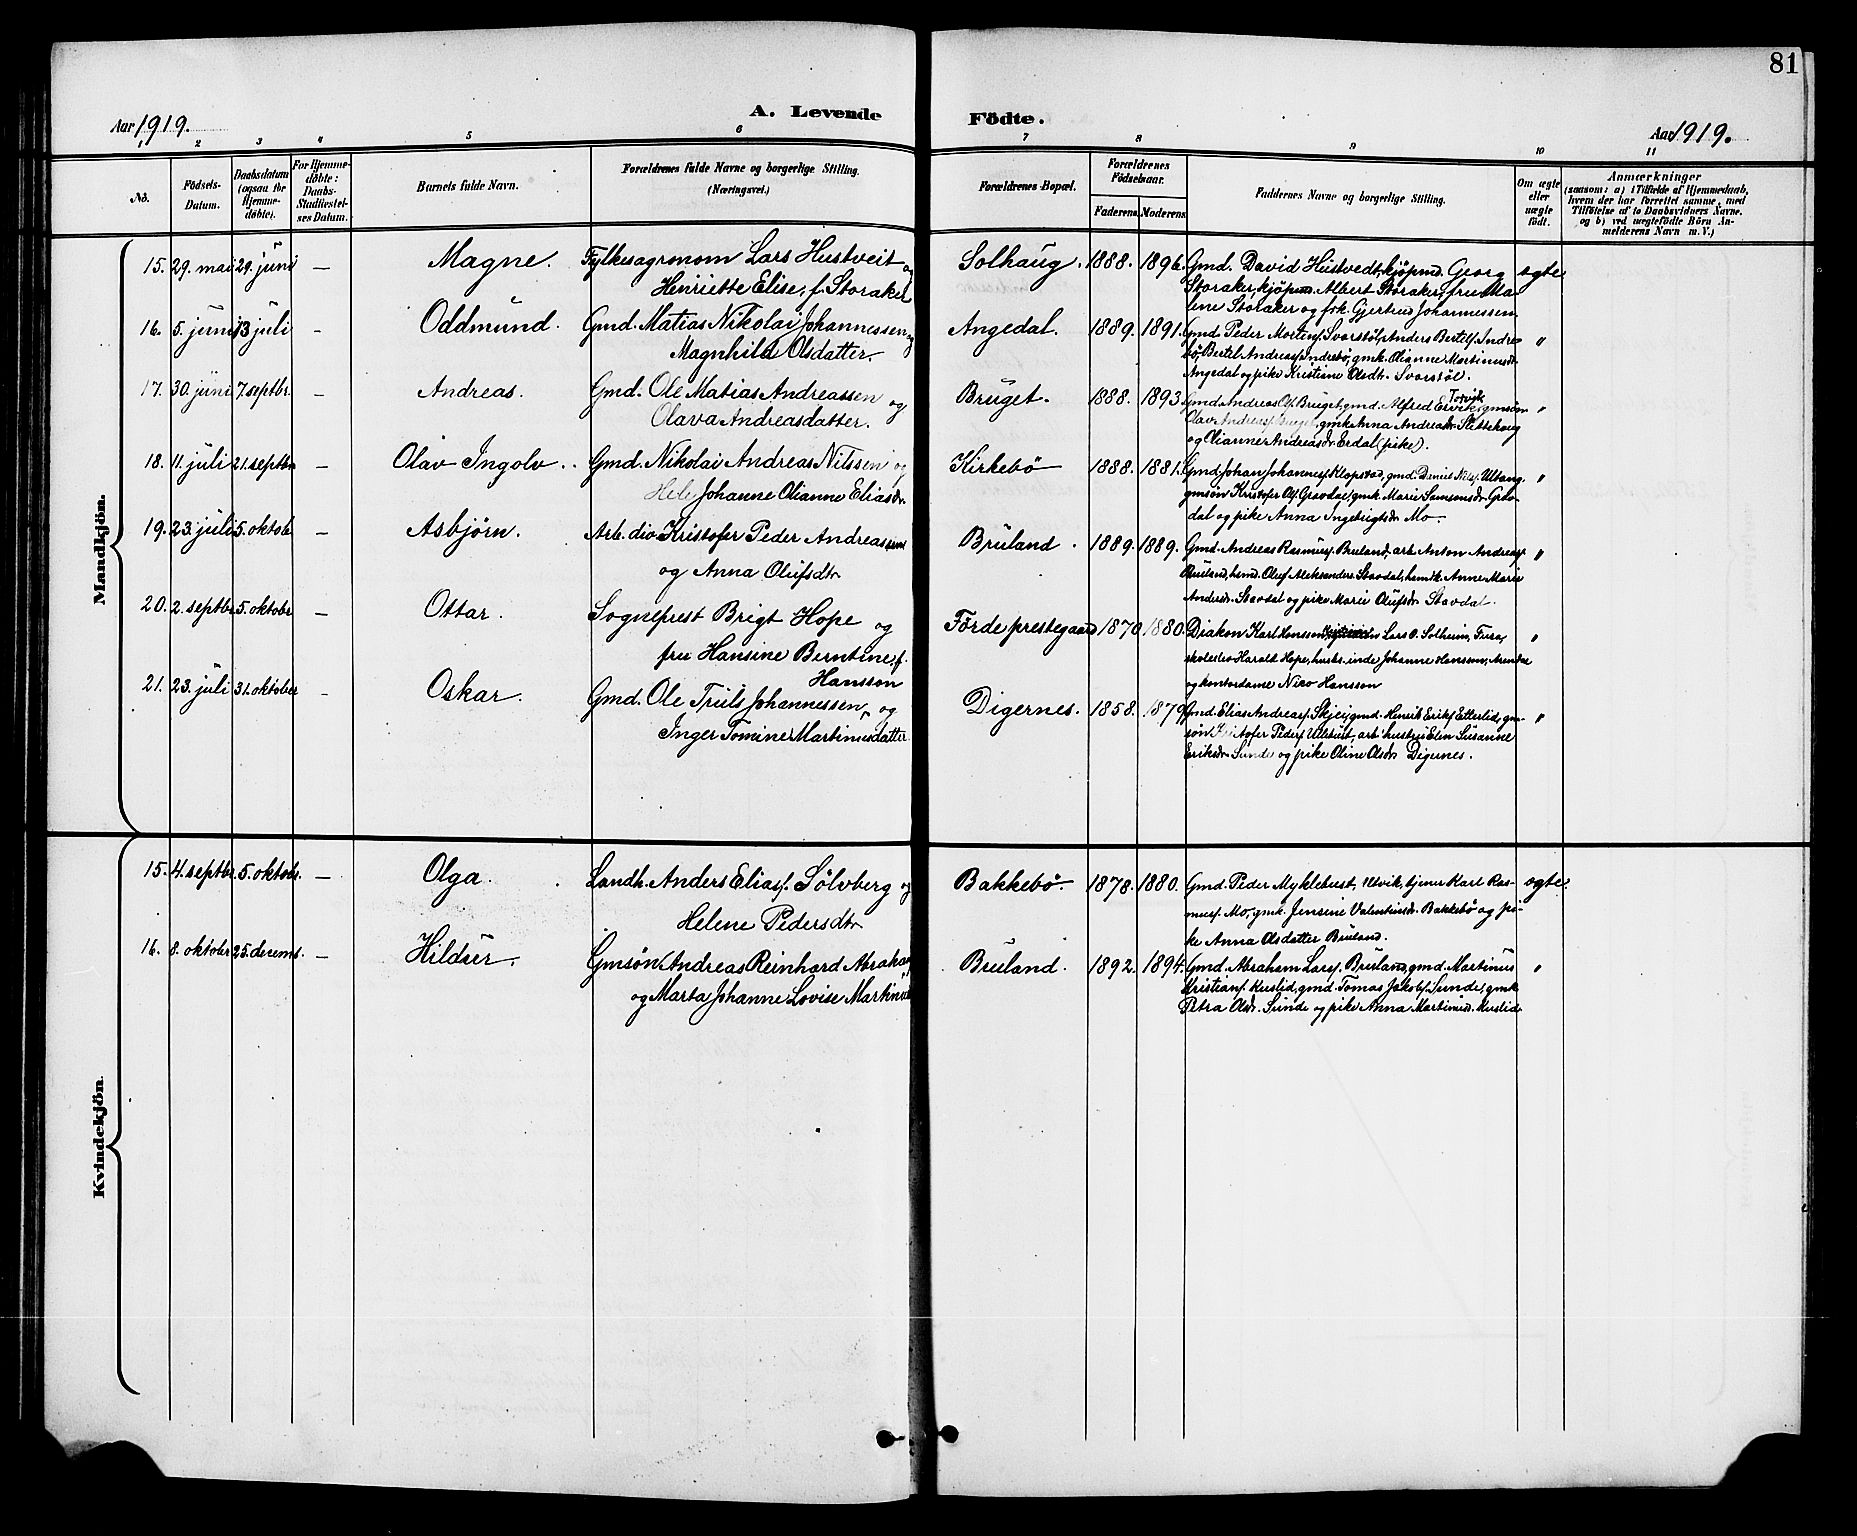 81
Aar 1919.
A. Levende
Födte.
Aar 1919.
1 2 3 4 5 6 7 8 9 10 11
No.
Födsels-
Datum.
Daabsdatum
(ogsaa for
Hjemme-
døbte).
For Hjemme-
døbte:
Daabs-
Stadfæstel-
ses Datum.
Barnets fulde Navn.
Forældrenes fulde Navne og borgerlige Stilling.
(Næringsvei.)
Forældrenes Bopæl.
Forældrenes
Födselsaar.
Faderens
Moderens
Faddernes Navne og borgerlige Stilling.
Om ægte
eller
uægte
födt.
Anmærkninger
(saasom: a) i Tilfælde af Hjemmedaab,
hvem der har forrettet samme, med
Tilföielse af to Daabsvidners Navne,
og b) ved uægtefödte Börn An-
melderens Navn m. V.)
Mandkjön.
15. 29. mai 29. juni – Magne. Fylkesagronom Lars Hustveit og
Henriette Elise, f. Storaker
Solhaug. 1888. 1896. Gmd. David Hustvedt, kjöpmd. Georg ægte
Storaker, kjöpm. Albert Storaker, fru Ma-
lene Storaker og frk. Gjertrud Johannessen.
16. 5. juni 13 juli – Oddmund. Gmd. Matias Nikolai Johannessen og
Magnhild Olsdatter.
Angedal. 1889. 1891. Gmd. Peder Mortensf. Svorstöl, Anders Bertelsf. Andre- "
bö, Bertel Andreasf. Indrebö, gmk. Olianne Martinusdr.
Angedal og pike Kristiane Olsdtr. Svorstöl.
17. 30 juni 7. septbr. – Andreas. Gmd. Ole Matias Andreassen og
Olava Andreasdatter.
Bruget. 1888. 1893. Gmd. Andreas Ols. Bruget, gmd. Alfred Torvik, gmsön "
Olav Andreasf. Bruget, gmk Anna Andreasdr. Slettehaug
og Olianne Andreasdr. Erdal (pike).
18. 11. juli 21. septbr – Olav Ingolv. Gmd. Nikolai Andreas Nilssen og
Johanne Olianne Eliasdr.
Kirkebö 1888. 1881. Gmd. Johan Johannesf. Klopstad, gmd. Daniel Nilsf. Ultang "
gmsön Kristofer Ols. Gravdal, gmk. Marie Samsonsdr. Grav-
dal og pike Anna Ingebrigtsdr. Mo.
19. 23. juli 5. oktobr – Asbjörn. Arb. div. Kristofer Peder Andreassen
og Anna Olufsdtr
Bruland. 1889. 1889. Gmd. Andreas Rasmusf. Bruland, arb. Anton Andreasf. "
Bruland, hsmd. Oluf Aleksanders. Stavdal, hsmk. Anne Marie
Andersdr. Stavdal og pike Marie Olufsdr. Stavdal.
20. 2. septbr. 5. oktobr. – Ottar. Sogneprest Brigt Hope og
fru Hansine Berntine, f.
Hansson
Förde prestegaard 1870 1880. Diakon Karl Hansson, Lars O. Solheim, Fura, "
skoleelev Harald Hope, hustr. inde Johanne Hansson, Arendal
og kontordame Nico Hansson
21. 23. juli 31. oktober – Oskar. Gmd. Ole Truls Johannessen, og
Inger Tomine Martinusdatter
Digernes. 1858. 1879. Gmd. Elias Andreasf. Skjei, gmd. Henrik Eriksf. Etterlid, gm- "
sön Kristofer Pedersf. arb. hustru Elen Susanne
Eriksdr. Sunde og pike Oline Olsdr. Digernes.
Kvindekjön.
15. 4. septbr. 5. oktobr. – Olga. Landh. Anders Eliasf. Sölvberg og
Helene Pedersdtr
Bakkebö. 1878. 1880. Gmd. Peder Myklebust, Utvik, tjener Karl Ras- ægte.
musf. Mo, gmk. Jensine Valentinsdr. Bakkebö og pi-
ke Anna Olsdatter Bruland.
16. 8. oktobr 25. decems. – Hildur. Gmsön Andreas Reinhard Abrahamf.
og Marta Johanne Lovise Martinusdr
Bruland. 1892. 1894. Gmd. Abraham Larsf. Bruland, gmd. Martinus "
Kristiansf. Kuslid, gmd. Tomas Jakobsf. Sunde, gmk.
Petra Olsdr. Sunde og pike Anna Martinusd. Kuslid